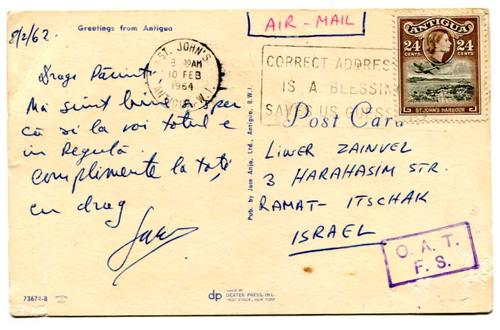 Greetings from Antigua
8/2/62
AIR-MAIL
ST. JOHN'S
8 30AM
10 FEB
1964
ANTIGUA. W.I.
CORRECT ADDRESS
IS A BLESSING
SAVES US GUESS
ANTIGUA
24 CENTS
24 CENTS
ST. JOHN'S HARBOUR
Post Card
Drags Părinți
Mă simt bine și sper
că și la voi totul e
în Regulă.
complimente la toți
cu drag
LIWER ZAINVEL
3 HARAHASIM STR.
RAMAT - ITSCHAK
ISRAEL
O. A. T.
F. S.
Pub. by Jose Anjo, Ltd., Antigua, B.W.I.
73674-B
dp
MADE BY
DEXTER PRESS, INC.
WEST NYACK, NEW YORK